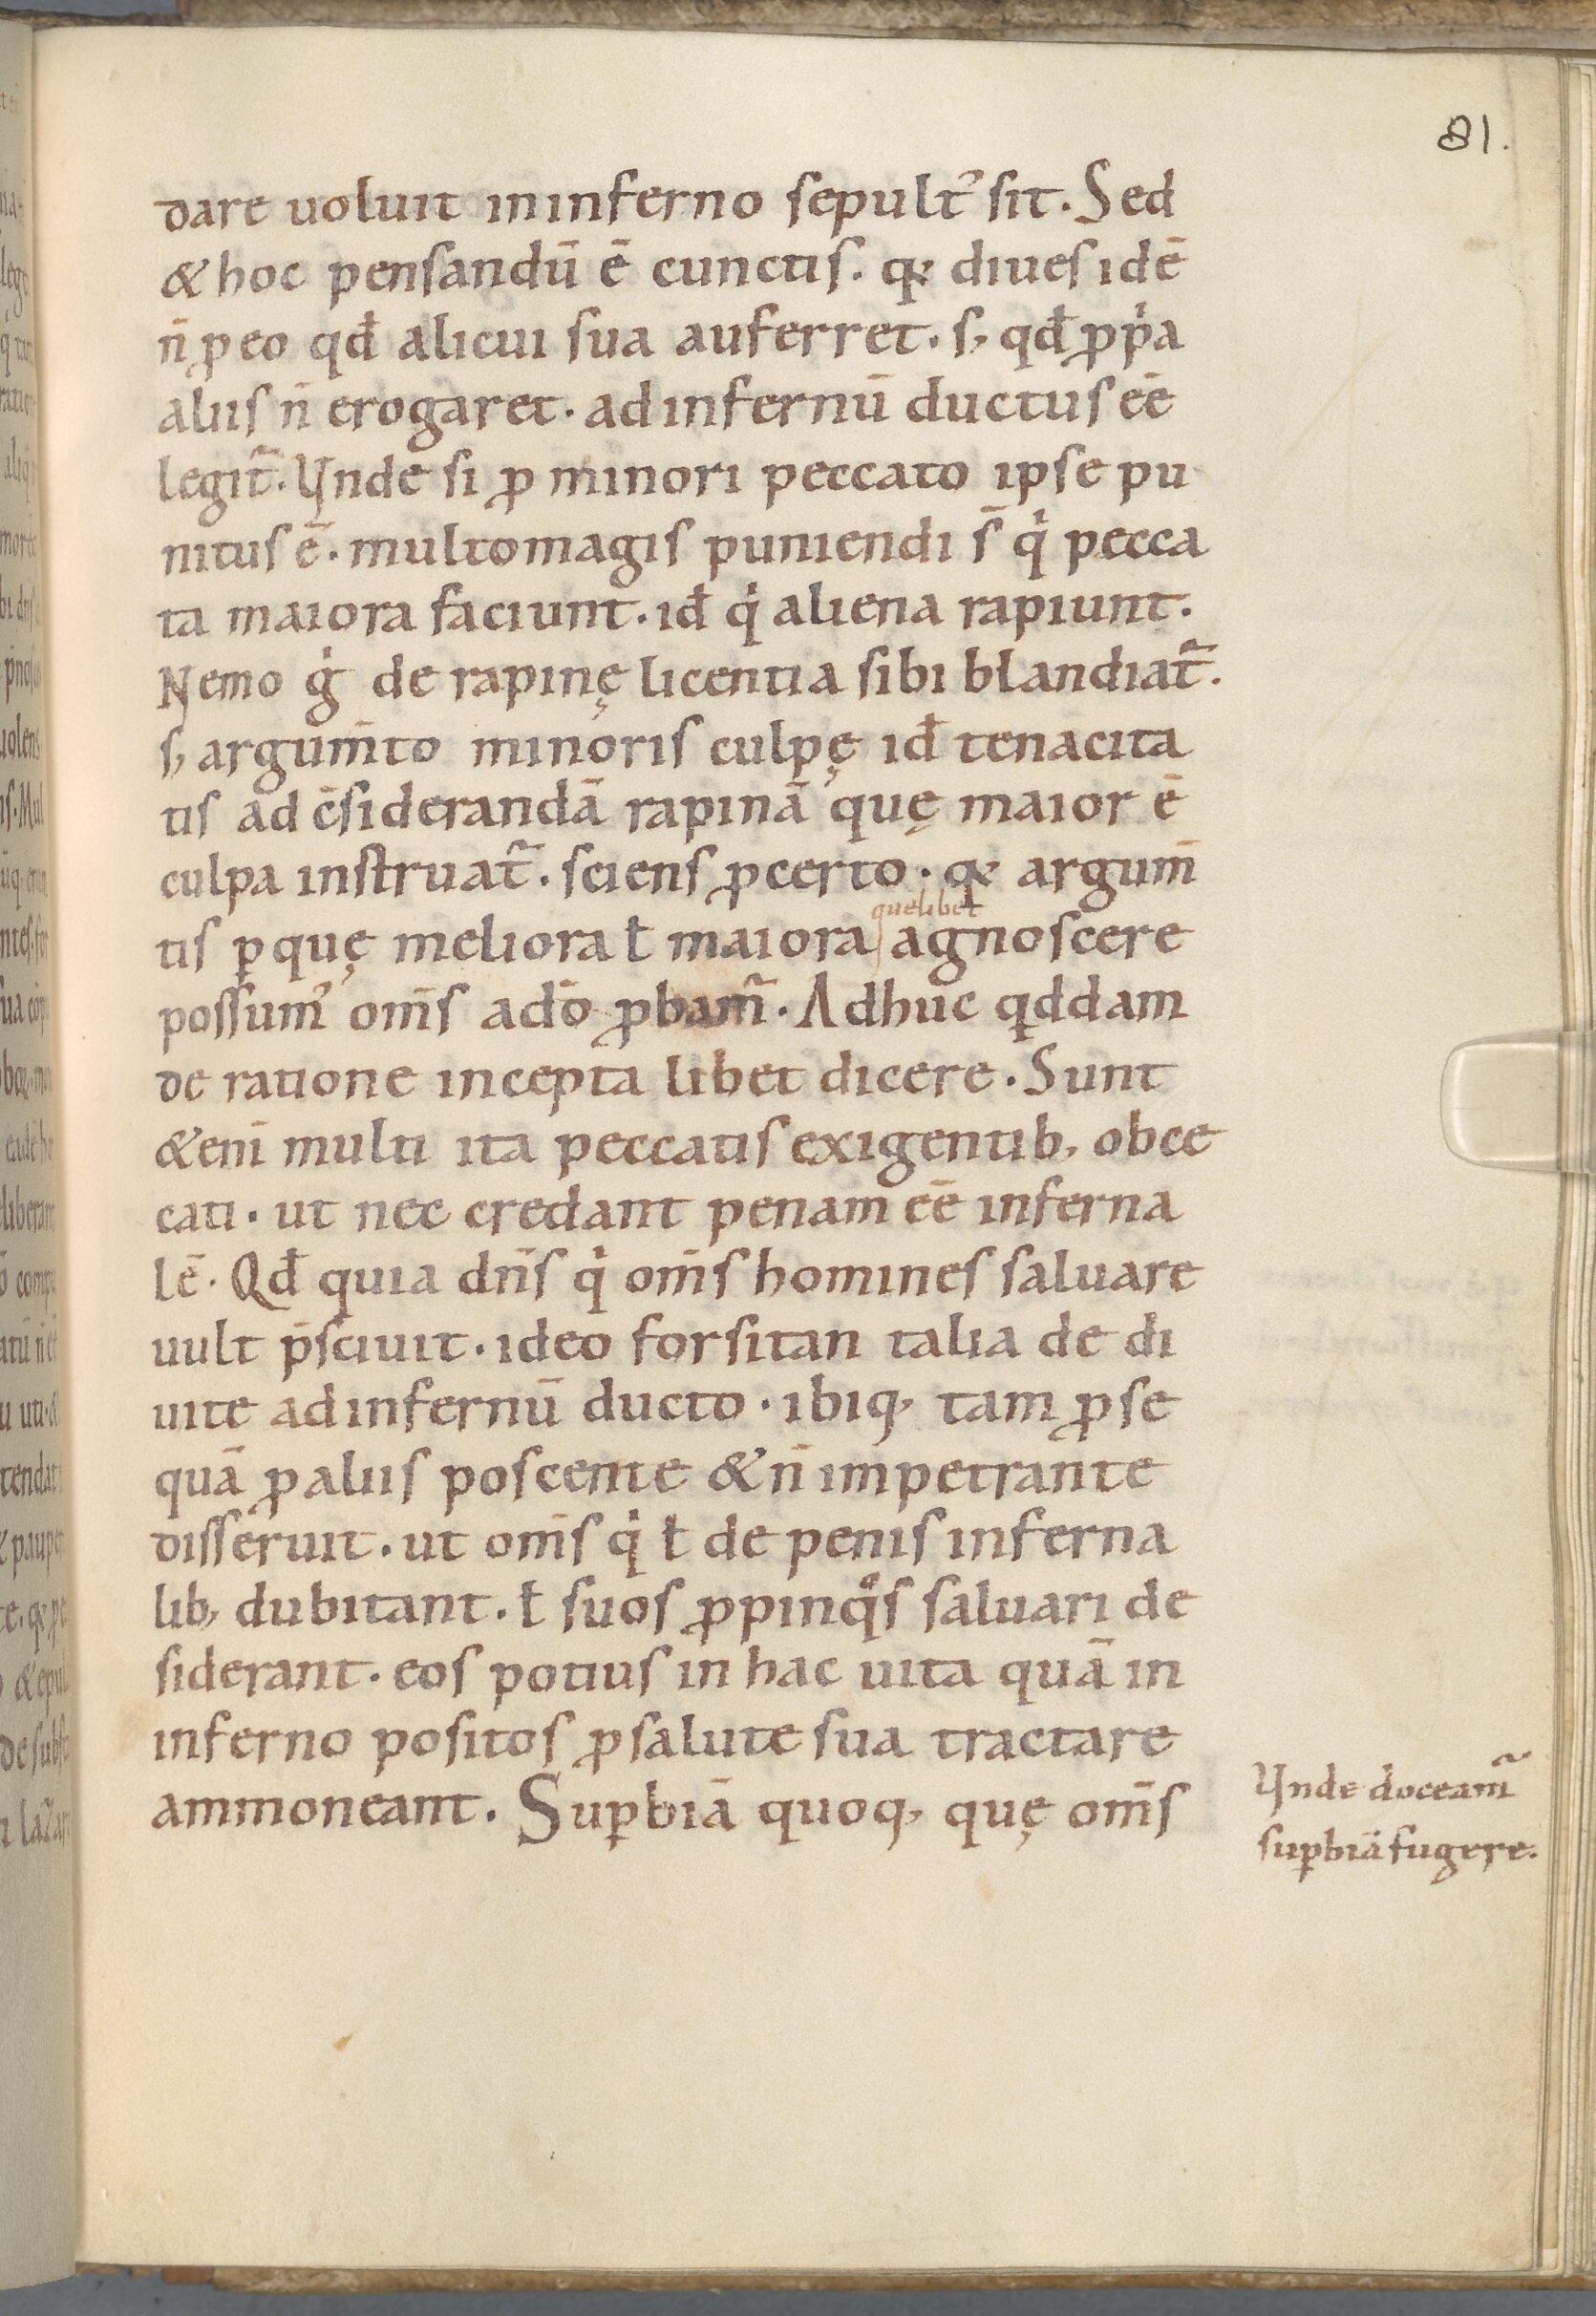 81.
dare uoluit in inferno sepult᾽ sit. Sed
& hoc pensandū ē cunctis. qꝫ diues idē
n̄ ꝓ eo qđ alicui sua auferret. s, qđ ꝓpͥa
aliis n̄ erogaret. ad infernū ductus eē
legit᷑. Vnde si ꝓ minori peccato ipse pu
nitus ē. multomagis puniendi s̄ qͥ pecca
ta maiora faciunt. id̄ qͥ aliena rapiunt.
Nemo gͥ de rapinę licentia sibi blandiat᷑.
s, argum̄to minoris culpę id̄ tenacita
tis ad c̄siderandā rapinā quę maior ē
culpa instruat᷑. sciens ꝓcerto. qꝫ argum̄
tis ꝑ quę meliora ł maiora quelibet agnoscere
possum᾽ om̄s adō ꝓbam᷑. Adhuc qddam
de ratione incepta libet dicere. Sunt
&eni̅ multi ita peccatis exigentib, obce
cati. ut nec credant penam eē inferna
lē. Qđ quia dn̄s qͥ om̄s homines saluare
uult p̄sciuit. ideo forsitan talia de di
uite ad infernū ducto. ibiq, tam ꝓ se
quā ꝓ aliis poscente & n̄ impetrante
disseruit. ut om̄s qͥ ł de penis inferna
lib, dubitant. ł suos ꝓpinqͦs saluari de
siderant. eos potius in hac uita quā in
inferno positos ꝓ salute sua tractare
ammoneant. Suꝑbiā quoq, quę om̄s
Vnde doceam᷑
suꝑbiā fugere.